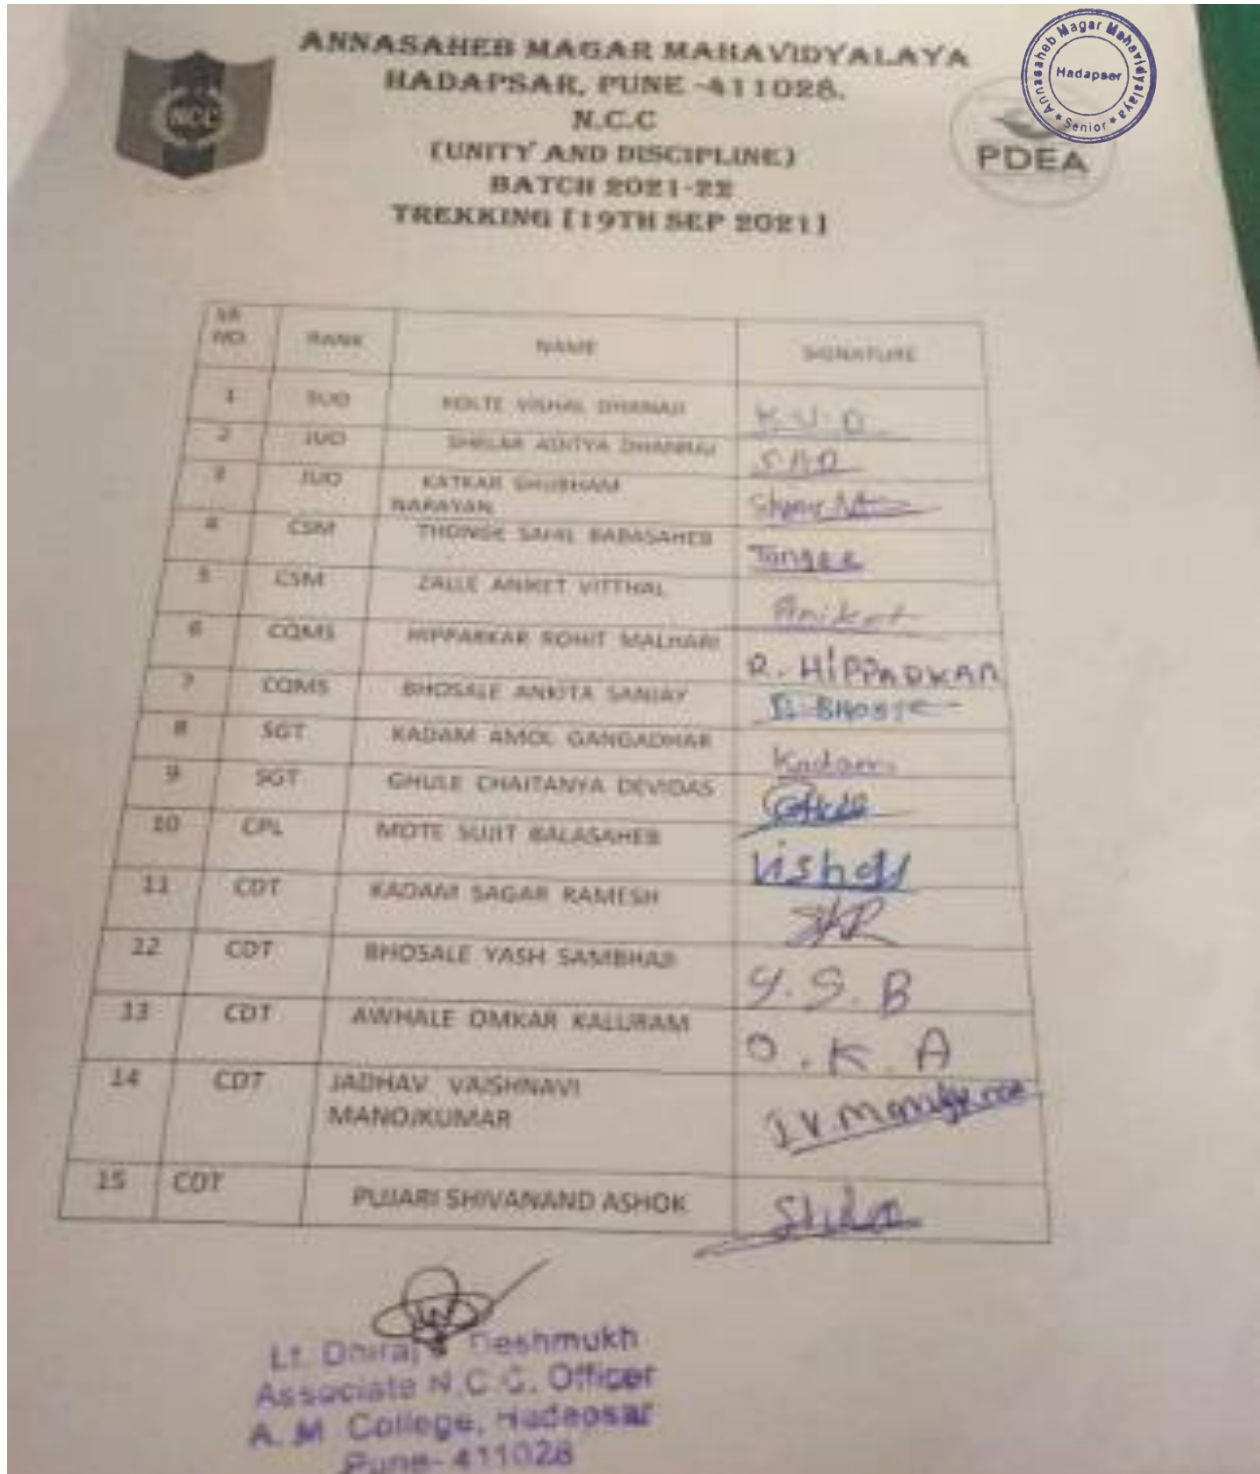 ANNASAHEB MAGAR MAHAVIDYALAYA
HADAPSAR, PUNE -411028.
N.C.C
(UNITY AND DISCIPLINE)
BATCH 2021-22
TREKKING [19TH SEP 2021]
NCC
PDEA
Annasaheb Magar Mahavidyalaya
Hadapser
* Senior *
SR NO. RANK NAME SIGNATURE
1 SUO KOLTE VISHAL DHANAJI K.V.D.
2 JUO SHELAR ADITYA DHANRAJ S.A.D
3 JUO KATKAR SHUBHAM
NARAYAN
4 CSM THONGE SAHIL BABASAHEB Tongee
5 CSM ZALLE ANIKET VITTHAL Aniket
6 CQMS HIPPARKAR ROHIT MALHARI R. HIPPARKAR
7 CQMS BHOSALE ANKITA SANJAY
8 SGT KADAM AMOL GANGADHAR Kadam
9 SGT GHULE CHAITANYA DEVIDAS
10 CPL MOTE SUJIT BALASAHEB Vishal
11 CDT KADAM SAGAR RAMESH
12 CDT BHOSALE YASH SAMBHAJI Y.S.B
13 CDT AWHALE OMKAR KALURAM O.K.A
14 CDT JADHAV VAISHNAVI
MANOJKUMAR
15 CDT PUJARI SHIVANAND ASHOK
Lt. Dhiraj Deshmukh
Associate N.C.C. Officer
A. M. College, Hadapsar
Pune- 411028